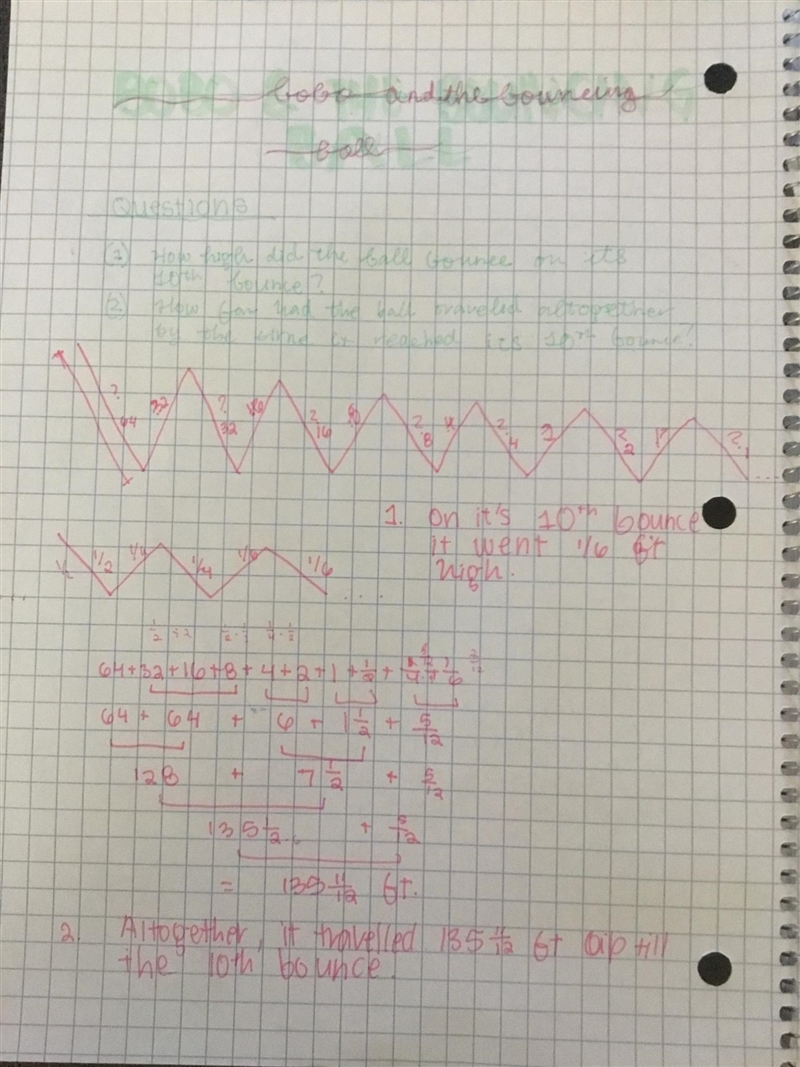 Bobo and the bouncing
ball
Questions
(1) How high did the ball bounce on its
10th bounce?
(2) How far had the ball traveled altogether
by the time it reached its 10th bounce?
? 64 32 ? 32 ? 16 ? 8 ? 4 ? 2 ?
1. On it's 10th bounce
it went 1/6 ft
high.
1/2 1/4 1/4 1/6 1/6
1/2 ÷ 2
64+32+16+8+4+2+1+1/2+1/4+1/6
64 + 64 + 6 + 1 1/2 + 5/12
128 + 7 1/2 + 5/12
135 1/2 + 5/12
= 135 11/12 ft.
2. Altogether, it travelled 135 11/12 ft up till
the 10th bounce.